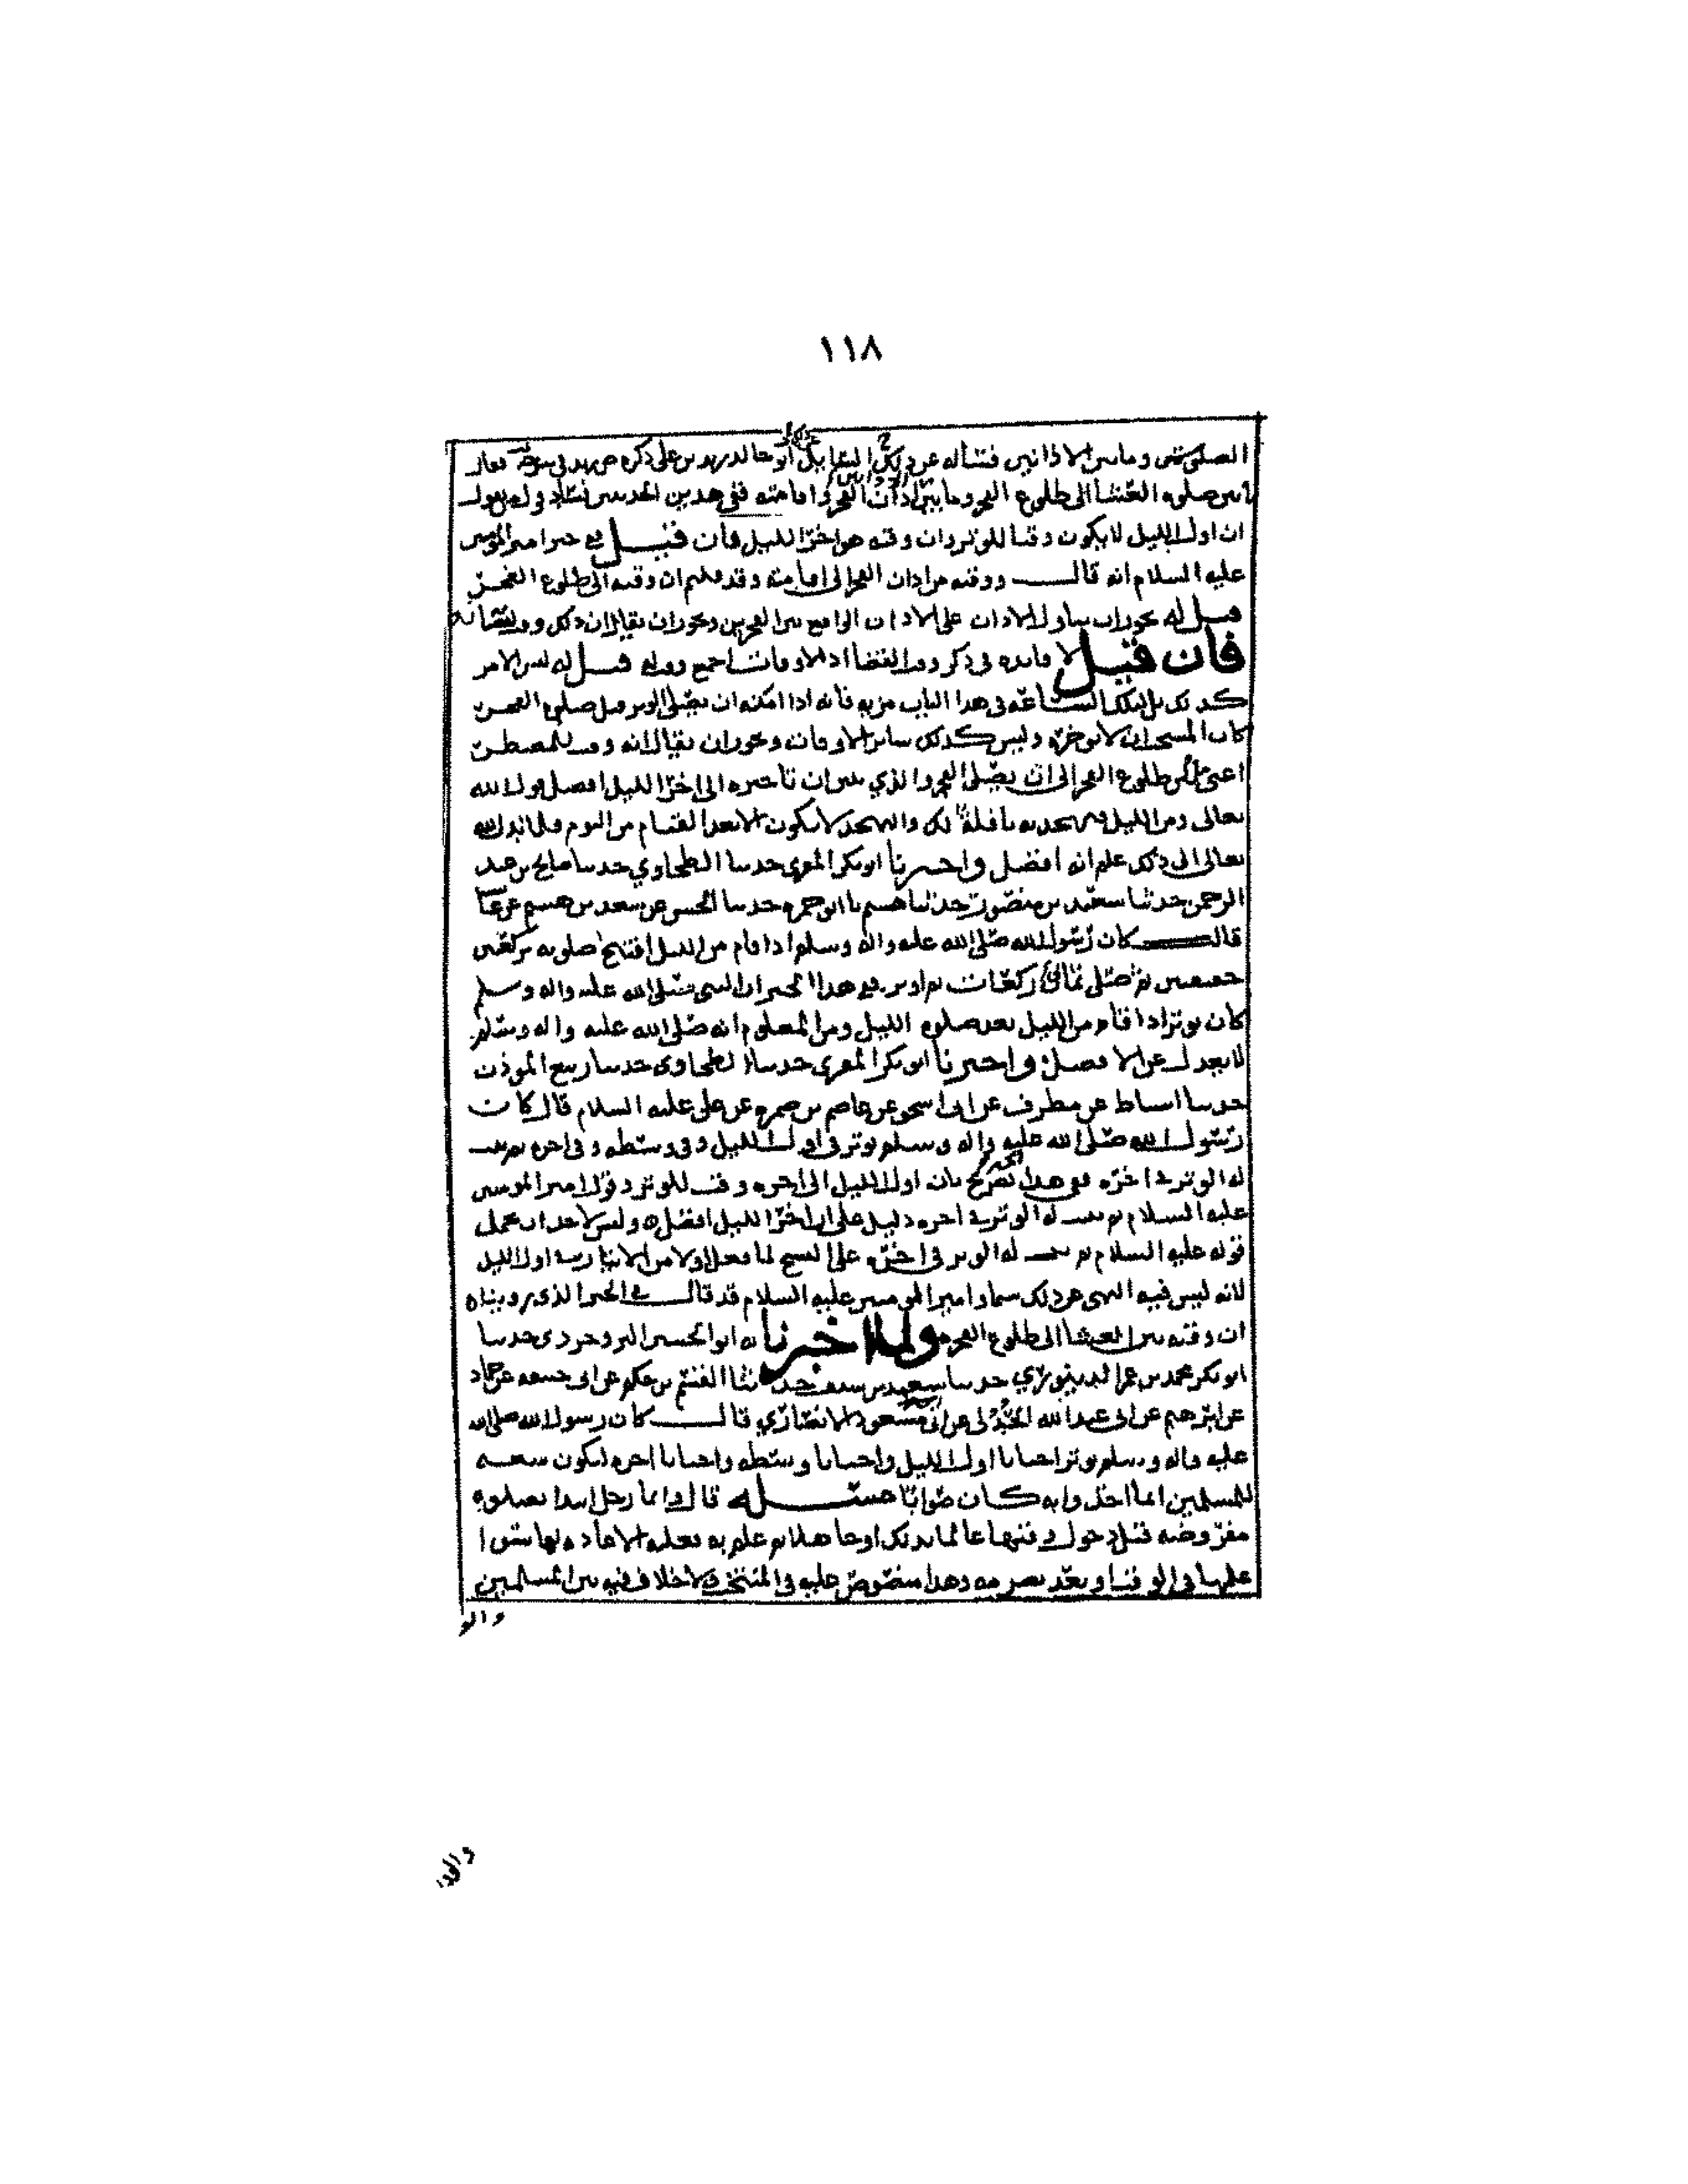 ١١٨
الصلوتين وما بين الاذانين فسأله عن ذلك السائل ابو خالد يزيد بن علي
بين صلوة العشا الى طلوع الفجر وما بين اذان الفجر واقامته ففي هذين الحديثين
ان اول الليل لا يكون وقتا للوتر وان وقته هو اخر الليل فان قيل في خبر امير المومنين
عليه السلام انه قال ووقته من اذان الفجر الى اقامته وقد علم ان وقته الى طلوع الفجر
قيل له يجوز ان يتاول الاذان على الاذان الواقع بين الفجرين ويجوز ان يقال ان ذلك وقت
فان قيل لا فايده في ذكر وقت القضا اذ الاوقات اجمع وقت له قيل له ليس الامر
كذلك بل لتلك الساعة في هذا الباب مزية فانه اذا امكنه ان يصلي الوتر قبل صلوة الفجر
كان المستحب ان لا يوخره وليس كذلك ساير الاوقات ويجوز ان يقال انه وقت للمضطر
اعني من طلوع الفجر الى ان يصلي الفجر والذي يبين ان تاخيره الى اخر الليل افضل قول الله
تعالى ومن الليل فتهجد به نافلة لك والتهجد لا يكون الا بعد القيام من النوم فلما ندب الله
تعالى الى ذلك علم انه افضل واخبرنا ابو بكر المقري حدثنا الطحاوي حدثنا صالح بن عبد
الرحمن حدثنا سعيد بن منصور حدثنا هشيم انا ابو حمزه حدثنا الحسن عن سعد بن هشام عن
قال كان رسول الله صلى الله عليه واله وسلم اذا قام من الليل افتتح صلوته بركعتين
خفيفتين ثم صلى ثماني ركعات ثم اوتر ففي هذا الخبر ان النبي صلى الله عليه واله وسلم
كان يوتر اذا قام من الليل بعد صلوة الليل ومن المعلوم انه صلى الله عليه واله وسلم
لا يعدل عن الافضل واخبرنا ابو بكر المقري حدثنا الطحاوي حدثنا ربيع الموذن
حدثنا اسباط عن مطرف عن ابي اسحق عن عاصم بن ضمره عن علي عليه السلام قال كان
رسول الله صلى الله عليه واله وسلم يوتر في اول الليل وفي وسطه وفي اخره ثم ثبت
له الوتر في اخره ففي هذا الخبر تصريح بان اول الليل الى اخره وقت للوتر وقول امير المومنين
عليه السلام ثم ثبت له الوتر في اخره دليل على ان اخر الليل افضل وليس لاحد ان يحمل
قوله عليه السلام ثم ثبت له الوتر في اخره على النسخ لما فعل اولا من الايتار في اول الليل
لانه ليس فيه النهي عن ذلك سيما وامير المومنين عليه السلام قد قال في الخبر الذي رويناه
ان وقته بين العشا الى طلوع الفجر ولما اخبرنا به ابو الحسين البروجردي حدثنا
ابو بكر محمد بن عمر الدينوري حدثنا حدثنا القسم بن حكم عن ابي حنيفه عن حماد
عن ابرهيم عن ابي عبد الله الجدلي عن ابي مسعود الانصاري قال كان رسول الله صلى الله
عليه واله وسلم يوتر احيانا اول الليل واحيانا وسطه واحيانا اخره ليكون سعة
للمسلمين ايما اخذوا به كان صوابا مسئله قال وايما رجل ابتدا بصلوة
مفروضه قبل دخول وقتها عالما بذلك او جاهلا ثم علم به فعليه الاعاده لها سوا
علمها في الوقت او بعد تصرمه وهذا منصوص عليه في المنتخب ولا خلاف فيه بين المسلمين
والو